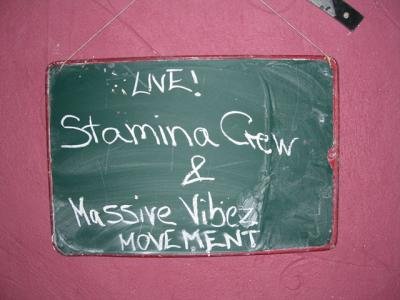 LIVE!
Stamina Crew
&
Massive Vibez
MOVEMENT